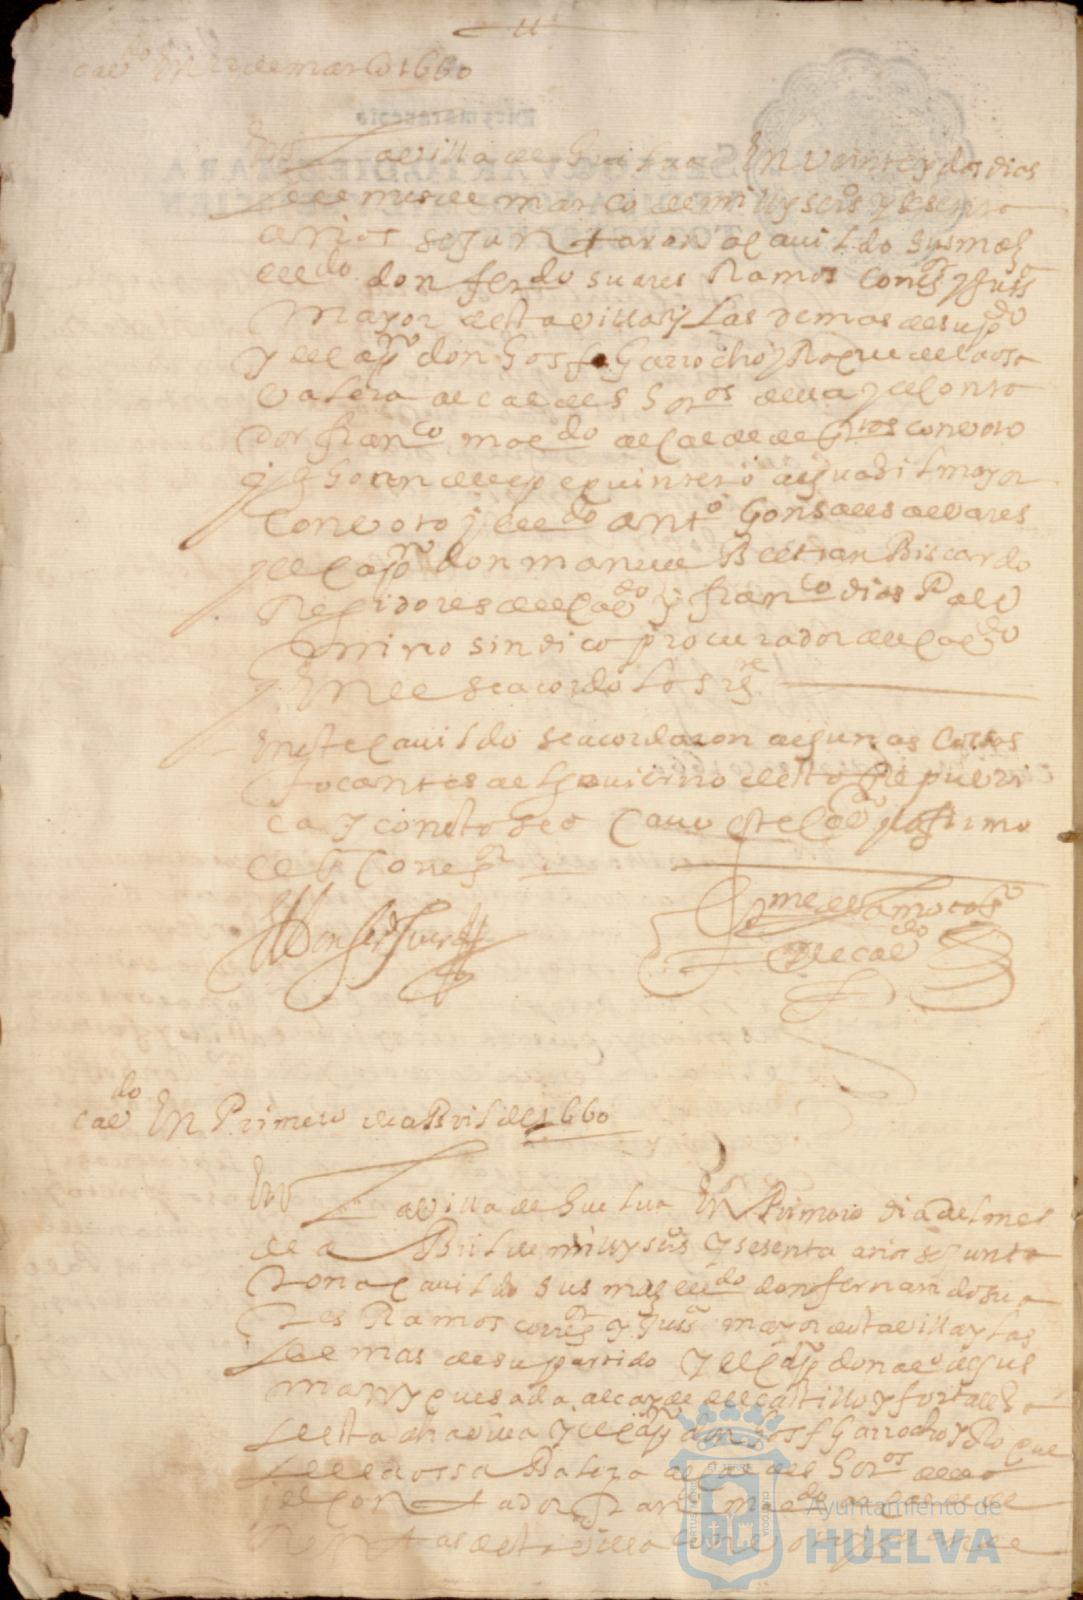 cavdo En 22 de março 1660
En La villa de Guelva En veinte y dos dias
del mes de março de mill y seiss y sesenta
años se juntaron a cavildo sus mds
el ldo don ferdo suares Ramos Corregr y Juss
Mayor desta villa y Las demas de su pdo
y el capn don Josf Garrocho y Roque de la osa
Valera alcaldes hordos della y el Conta
dor franco maldo alcalde de Rtas con voto
y Juan delipe quintero alguasil mayor
con voto y el ldo anto Gonsales alvares
y el capn don manuel Beltran Biscardo
Regidores del cavdo y franco dias Palo
mino sindico procurador del cavdo
y En el se acordo Lo sigte
En este Cavildo se acordaron algunas Cosas
tocantes al govierno desta Republi
ca y con esto se a Cavo este Cavdo y lo firmo
el sr Corregr
Don ferdo Suares
cavdo En Primero de aBril de 1660
En La villa de Guelva En Primero dia del mes
de aBril de mill y seiss y sesenta años se junta
ron a Cavildo sus mds el ldo don fernando sua
res Ramos corregr y Juss mayor desta villa y Las
de mas de su partido y el capn don alo de gus
man y quesada alcayde del castillo y fortalesa
desta dha villa y el capn don Josf Garrocho y Roque
de la ossa Balera alcaldes hordos della
y el Contador fran maldo alcalde de
Rentas desta villa con voto y Juan de
Ayuntamiento de
HUELVA